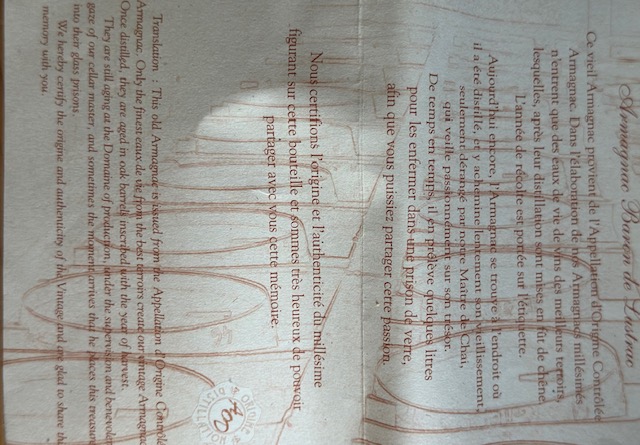 Armagnac Baron de Lustrac
Ce vieil Armagnac provient de l'Appellation d'Origine Contrôlée
Armagnac. Dans l'élaboration de nos Armagnacs millésimés
n'entrent que des eaux de vie de vins des meilleurs terroirs,
lesquelles, après leur distillation sont mises en fût de chêne.
L'année de récolte est portée sur l'étiquette.
Aujourd'hui encore, l'Armagnac se trouve à l'endroit où
il a été distillé, et y achemine lentement son vieillissement,
seulement dérangé par notre Maître de Chai,
qui veille passionnément sur son trésor.
De temps en temps, l'on prélève quelques litres
pour les enfermer dans une prison de verre,
afin que vous puissiez partager cette passion.
Nous certifions l'origine et l'authenticité du millésime
figurant sur cette bouteille et sommes très heureux de pouvoir
partager avec vous cette mémoire.
Translation : This old Armagnac is issued from the Appellation d'Origine Contrôlé
Armagnac. Only the finest eaux de vie from the best terroirs create our vintage Armagnac
Once distilled, they are aged in oak barrels inscribed with the year of harvest.
They are still aging at the Domaine of production, under the supervision and benevole
gaze of our cellar master, and sometimes the moment arrives that he places this treasure
into their glass prisons.
We hereby certify the origine and authenticity of the Vintage and are glad to share th
memory with you.